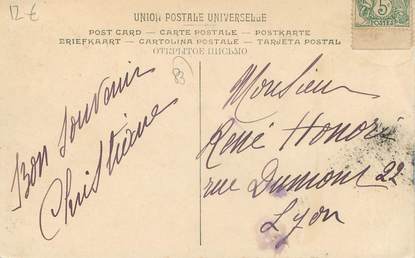 12 €
UNION POSTALE UNIVERSELLE
POST CARD — CARTE POSTALE — POSTKARTE
BRIEFKAART — CARTOLINA POSTALE — TARJETA POSTAL
ОТКРЫТОЕ ПИСЬМО
5
83
Bon souvenir
Christiane
Monsieur
René Honoré
rue Dumont 22
Lyon